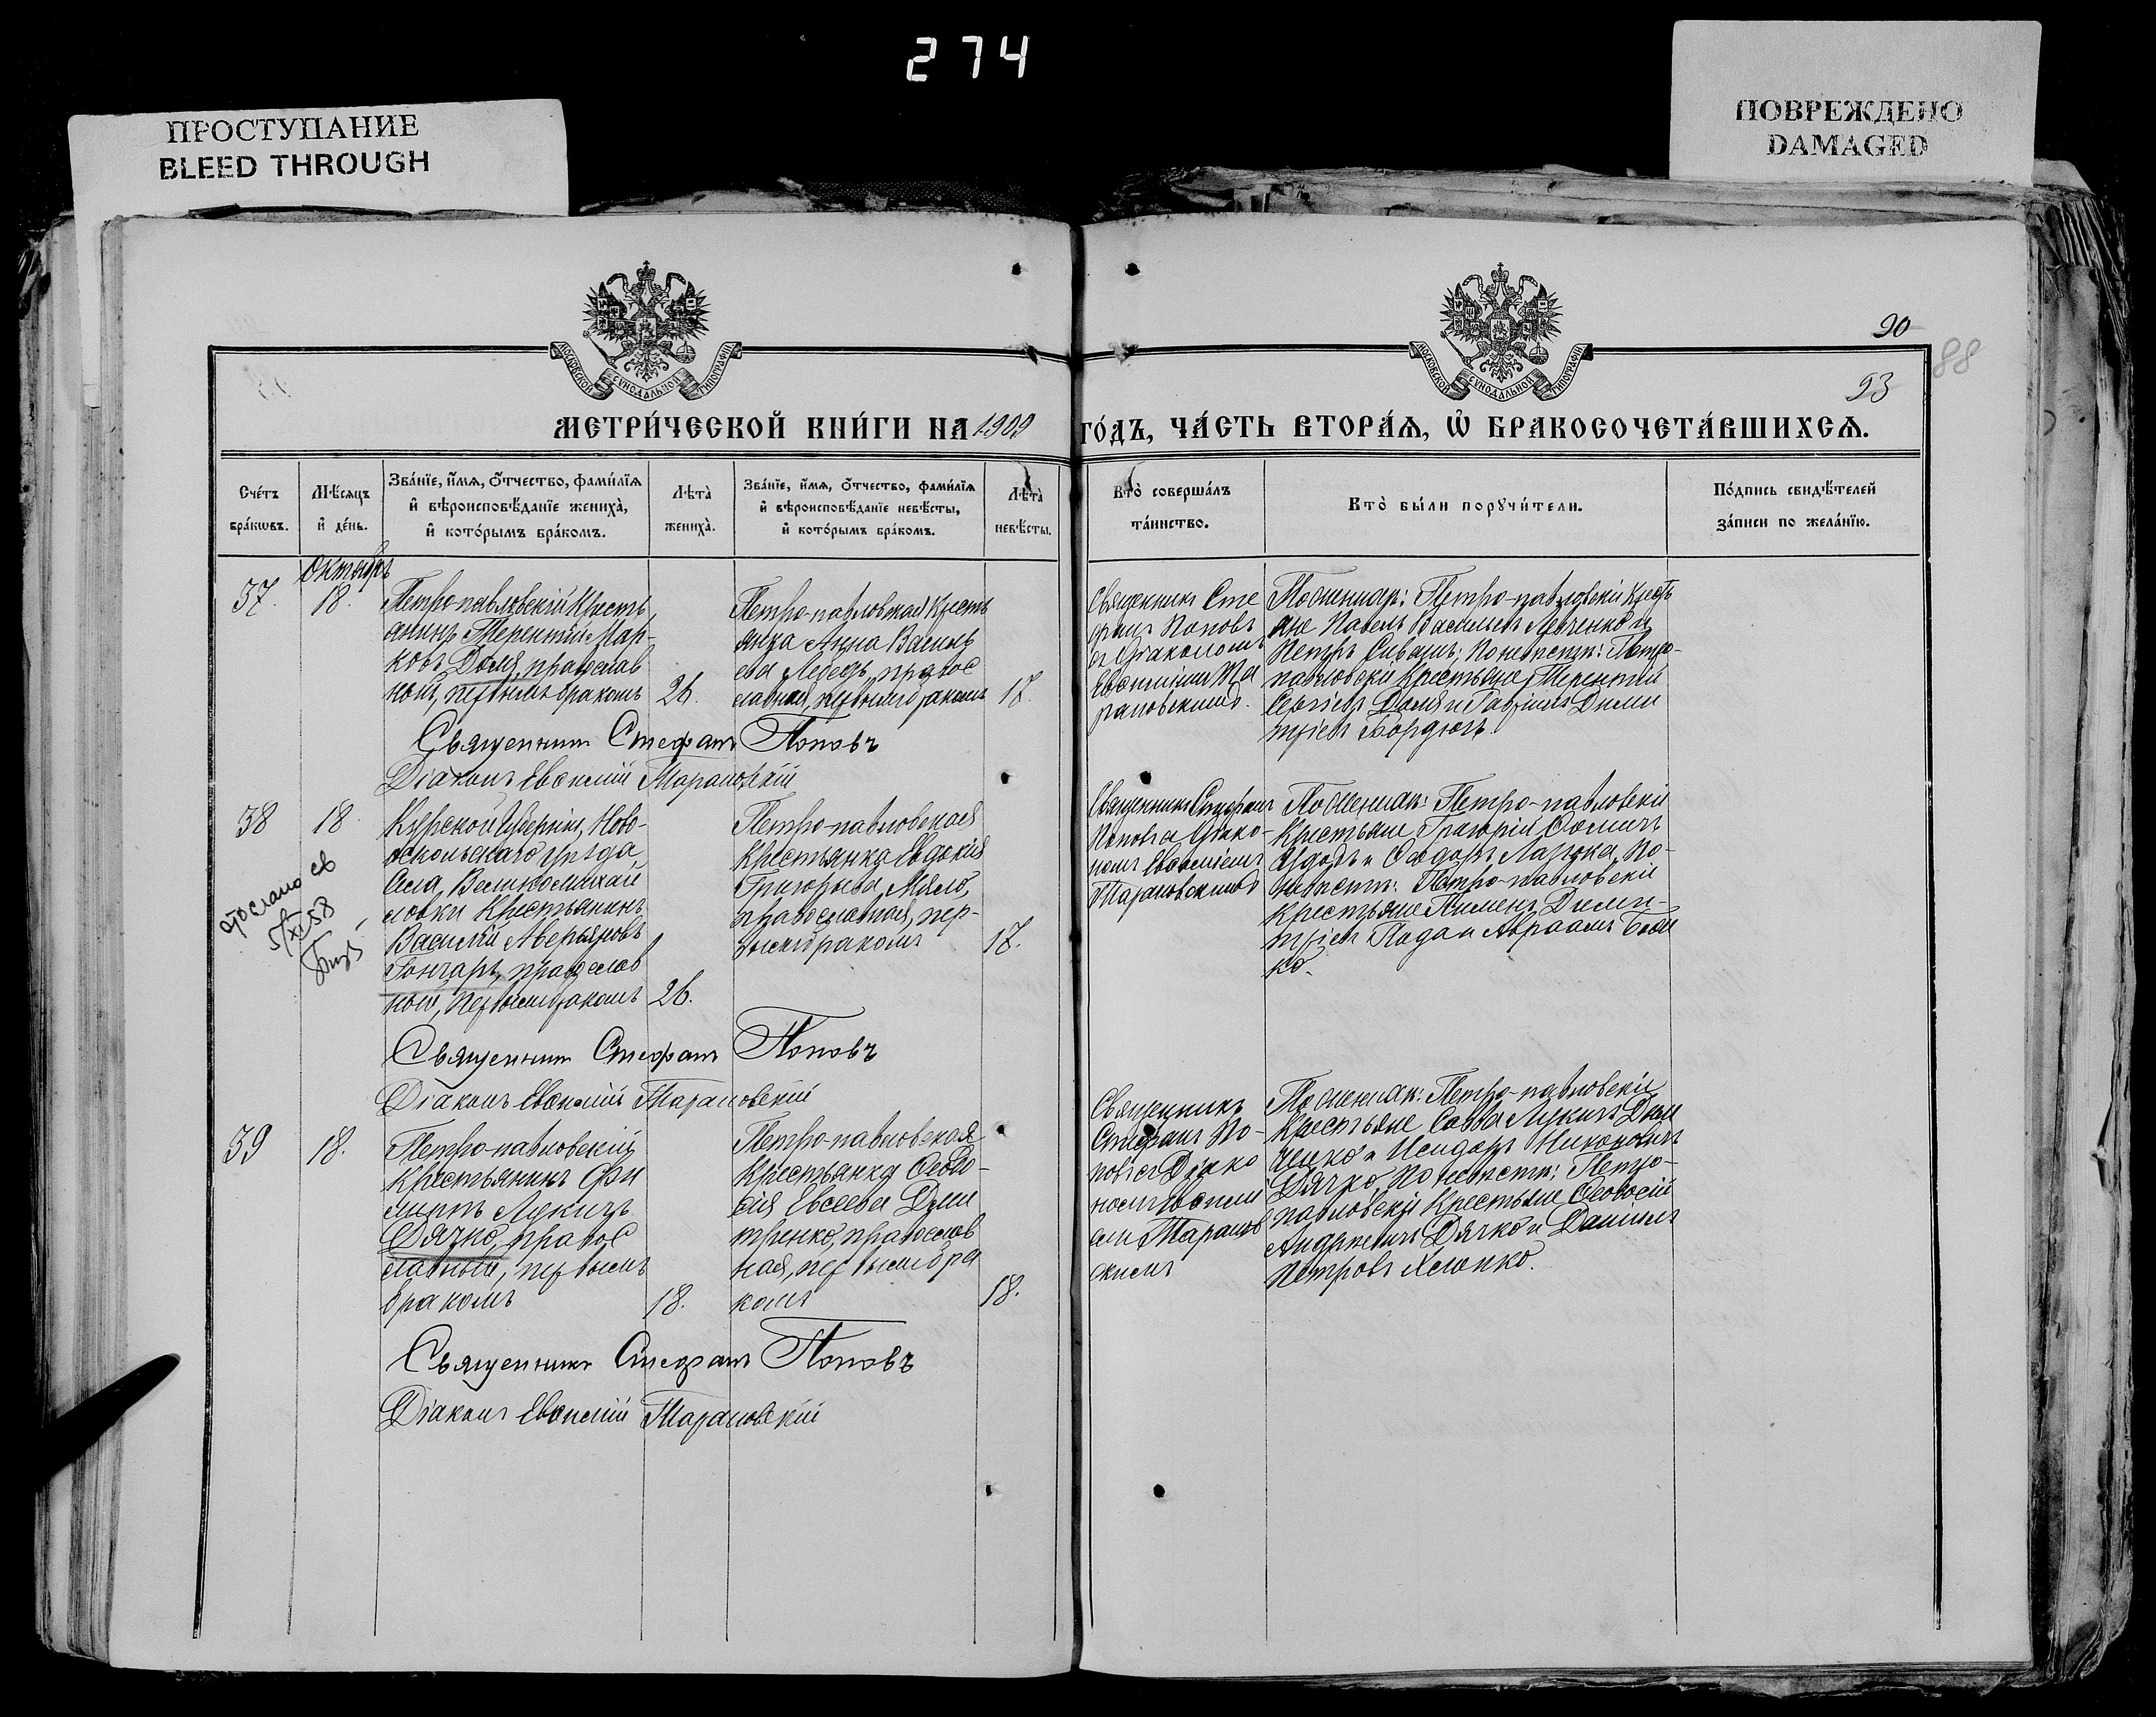 274
ПРОСТУПАНИЕ
BLEED THROUGH
ПОВРЕЖДЕНО
DAMAGED
МОСКОВСКОЙ СѴНОДАЛЬНОЙ ТИПОГРАФІИ
МОСКОВСКОЙ СѴНОДАЛЬНОЙ ТИПОГРАФІИ
90
88
93
МЕТРИ́ЧЕСКОЙ КНИ́ГИ НА 1909 ГО́ДЪ, ЧА́СТЬ ВТОРА́Ѧ, Ѽ БРАКОСОЧЕТА́ВШИХСѦ.
Сче́тъ
бра́кѡвъ.
Мѣ́сѧцъ
и҆ де́нь.
Зва́нїе, и҆́мѧ, ѻ҆́тчество, фами́лїѧ
и҆ вѣроисповѣ́данїе жениха̀,
и҆ кото́рымъ бра́комъ.
Лѣта̀
жениха̀.
Зва́нїе, и҆́мѧ, ѻ҆́тчество, фами́лїѧ
и҆ вѣроисповѣ́данїе невѣ́сты,
и҆ кото́рымъ бра́комъ.
Лѣта̀
невѣ́сты.
Кто̀ соверша́лъ
та́инство.
Кто̀ бы́ли порꙋчи́тели.
По́дпись свидѣ́телей
за́писи по жела́нїю.
Октябрь
37.
18.
Петро-павловскій Кресть
янинъ Терентій Мар-
ковъ Доля, православ
ный, первымъ бракомъ
26.
Петро-павловская Кресть
янка Анна Василь
ева Лебедь, правос
лавная, первымъ бракомъ
17.
Священникъ Сте
фанъ Поповъ
съ Діакономъ
Евѳиміемъ Та
рановскимъ.
По женихѣ: Петро-павловскіе Кресть
яне Павелъ Васильевъ Левченко и
Петръ Сивашъ; По невѣстѣ: Петро-
павловскіе Крестьяне Терентій
Сергіевъ Доля и Гавріилъ Дими
тріевъ Бордюгъ.
Священникъ Стефанъ Поповъ
Діаконъ Евѳимій Тарановскій
38
18
отослано св
5/XI 58
Курской Губерніи, Ново-
оскольскаго уѣзда,
села, Великомихай
ловки Крестьянинъ
Василій Аверьяновъ
Гончаръ, православ
ный, первымъ бракомъ
26.
Петро-павловская
Крестьянка Евдокія
Григорьева Мяло,
православная, пер-
вымъ бракомъ
17.
Священникъ Стефанъ
Поповъ съ Діако-
номъ Евѳиміемъ
Тарановскимъ
По женихѣ: Петро-павловскіе
Крестьяне Григорій Ѳомичъ
и Ѳеодоръ По-
невѣстѣ: Петро-павловскіе
Крестьяне Пименъ Дими-
тріевъ и Авраамъ
ко.
Священникъ Стефанъ Поповъ
Діаконъ Евѳимій Тарановскій
39
18.
Петро-павловскій
Крестьянинъ Фи
липпъ Лукичъ
Дячко, правос
лавный, первымъ
бракомъ
18.
Петро-павловская
Крестьянка Ѳеодо-
сія Евсеева Дми
тренко, православ
ная, первымъ бра
комъ
18.
Священникъ
Стефанъ По-
повъ съ Діако
номъ Евѳимі
емъ Таранов
скимъ
По женихѣ: Петро-павловскіе
Крестьяне Савва Лукичъ Дем
ченко и Исидоръ Никоновичъ
Дячко, По невѣстѣ: Петро-
павловскіе Крестьяне Ѳеодосій
Андреевичъ Дячко и Даніилъ
Петровъ Хсюпко.
Священникъ Стефанъ Поповъ
Діаконъ Евѳимій Тарановскій